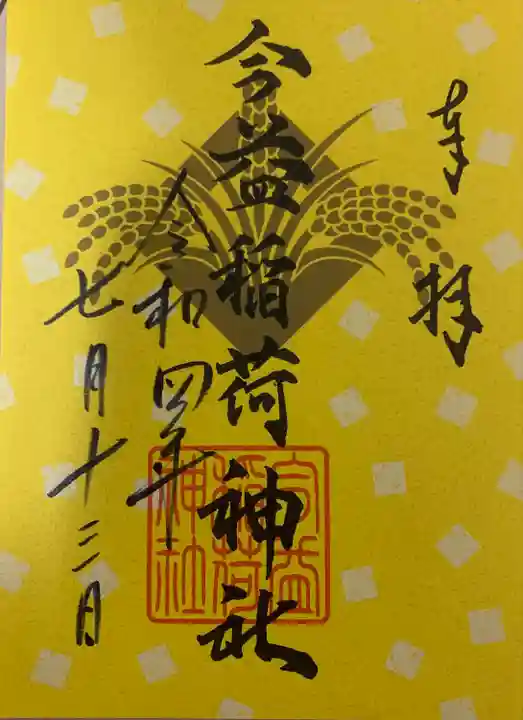 奉拝
今益稲荷神社
令和四年
七月十三日
益
稲荷
神社